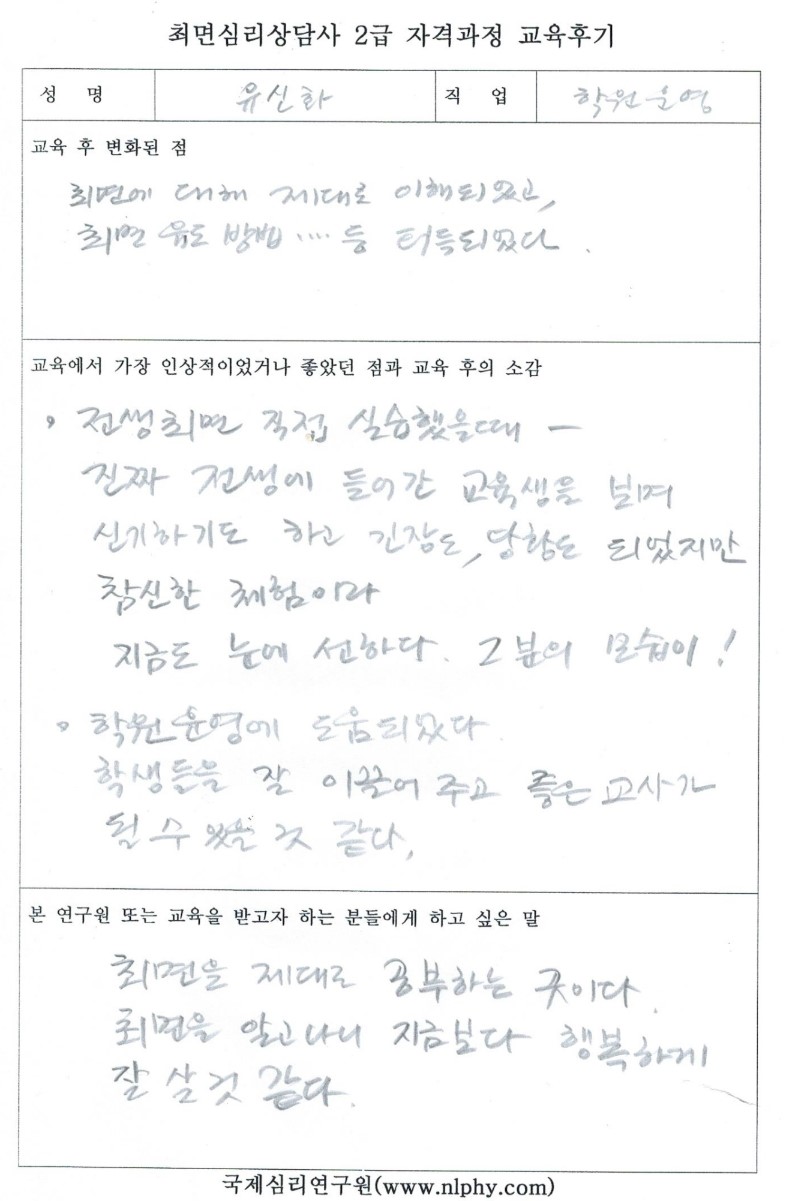 최면심리상담사 2급 자격과정 교육후기
성 명 유신화 직 업 학원운영
교육 후 변화된 점
최면에 대해 제대로 이해되었고,
최면 유도 방법 .... 등 터득되었다.
교육에서 가장 인상적이었거나 좋았던 점과 교육 후의 소감
• 전생최면 직접 실습했을때 -
진짜 전생에 들어간 교육생을 보며
신기하기도 하고 긴장도, 당황도 되었지만
참신한 체험이라
지금도 눈에 선하다. 그분의 모습이!
• 학원운영에 도움되었다
학생들을 잘 이끌어 주고 좋은 교사가
될 수 있을 것 같다,
본 연구원 또는 교육을 받고자 하는 분들에게 하고 싶은 말
최면을 제대로 공부하는 곳이다.
최면을 알고나니 지금보다 행복하게
잘 살 것 같다.
국제심리연구원(www.nlphy.com)